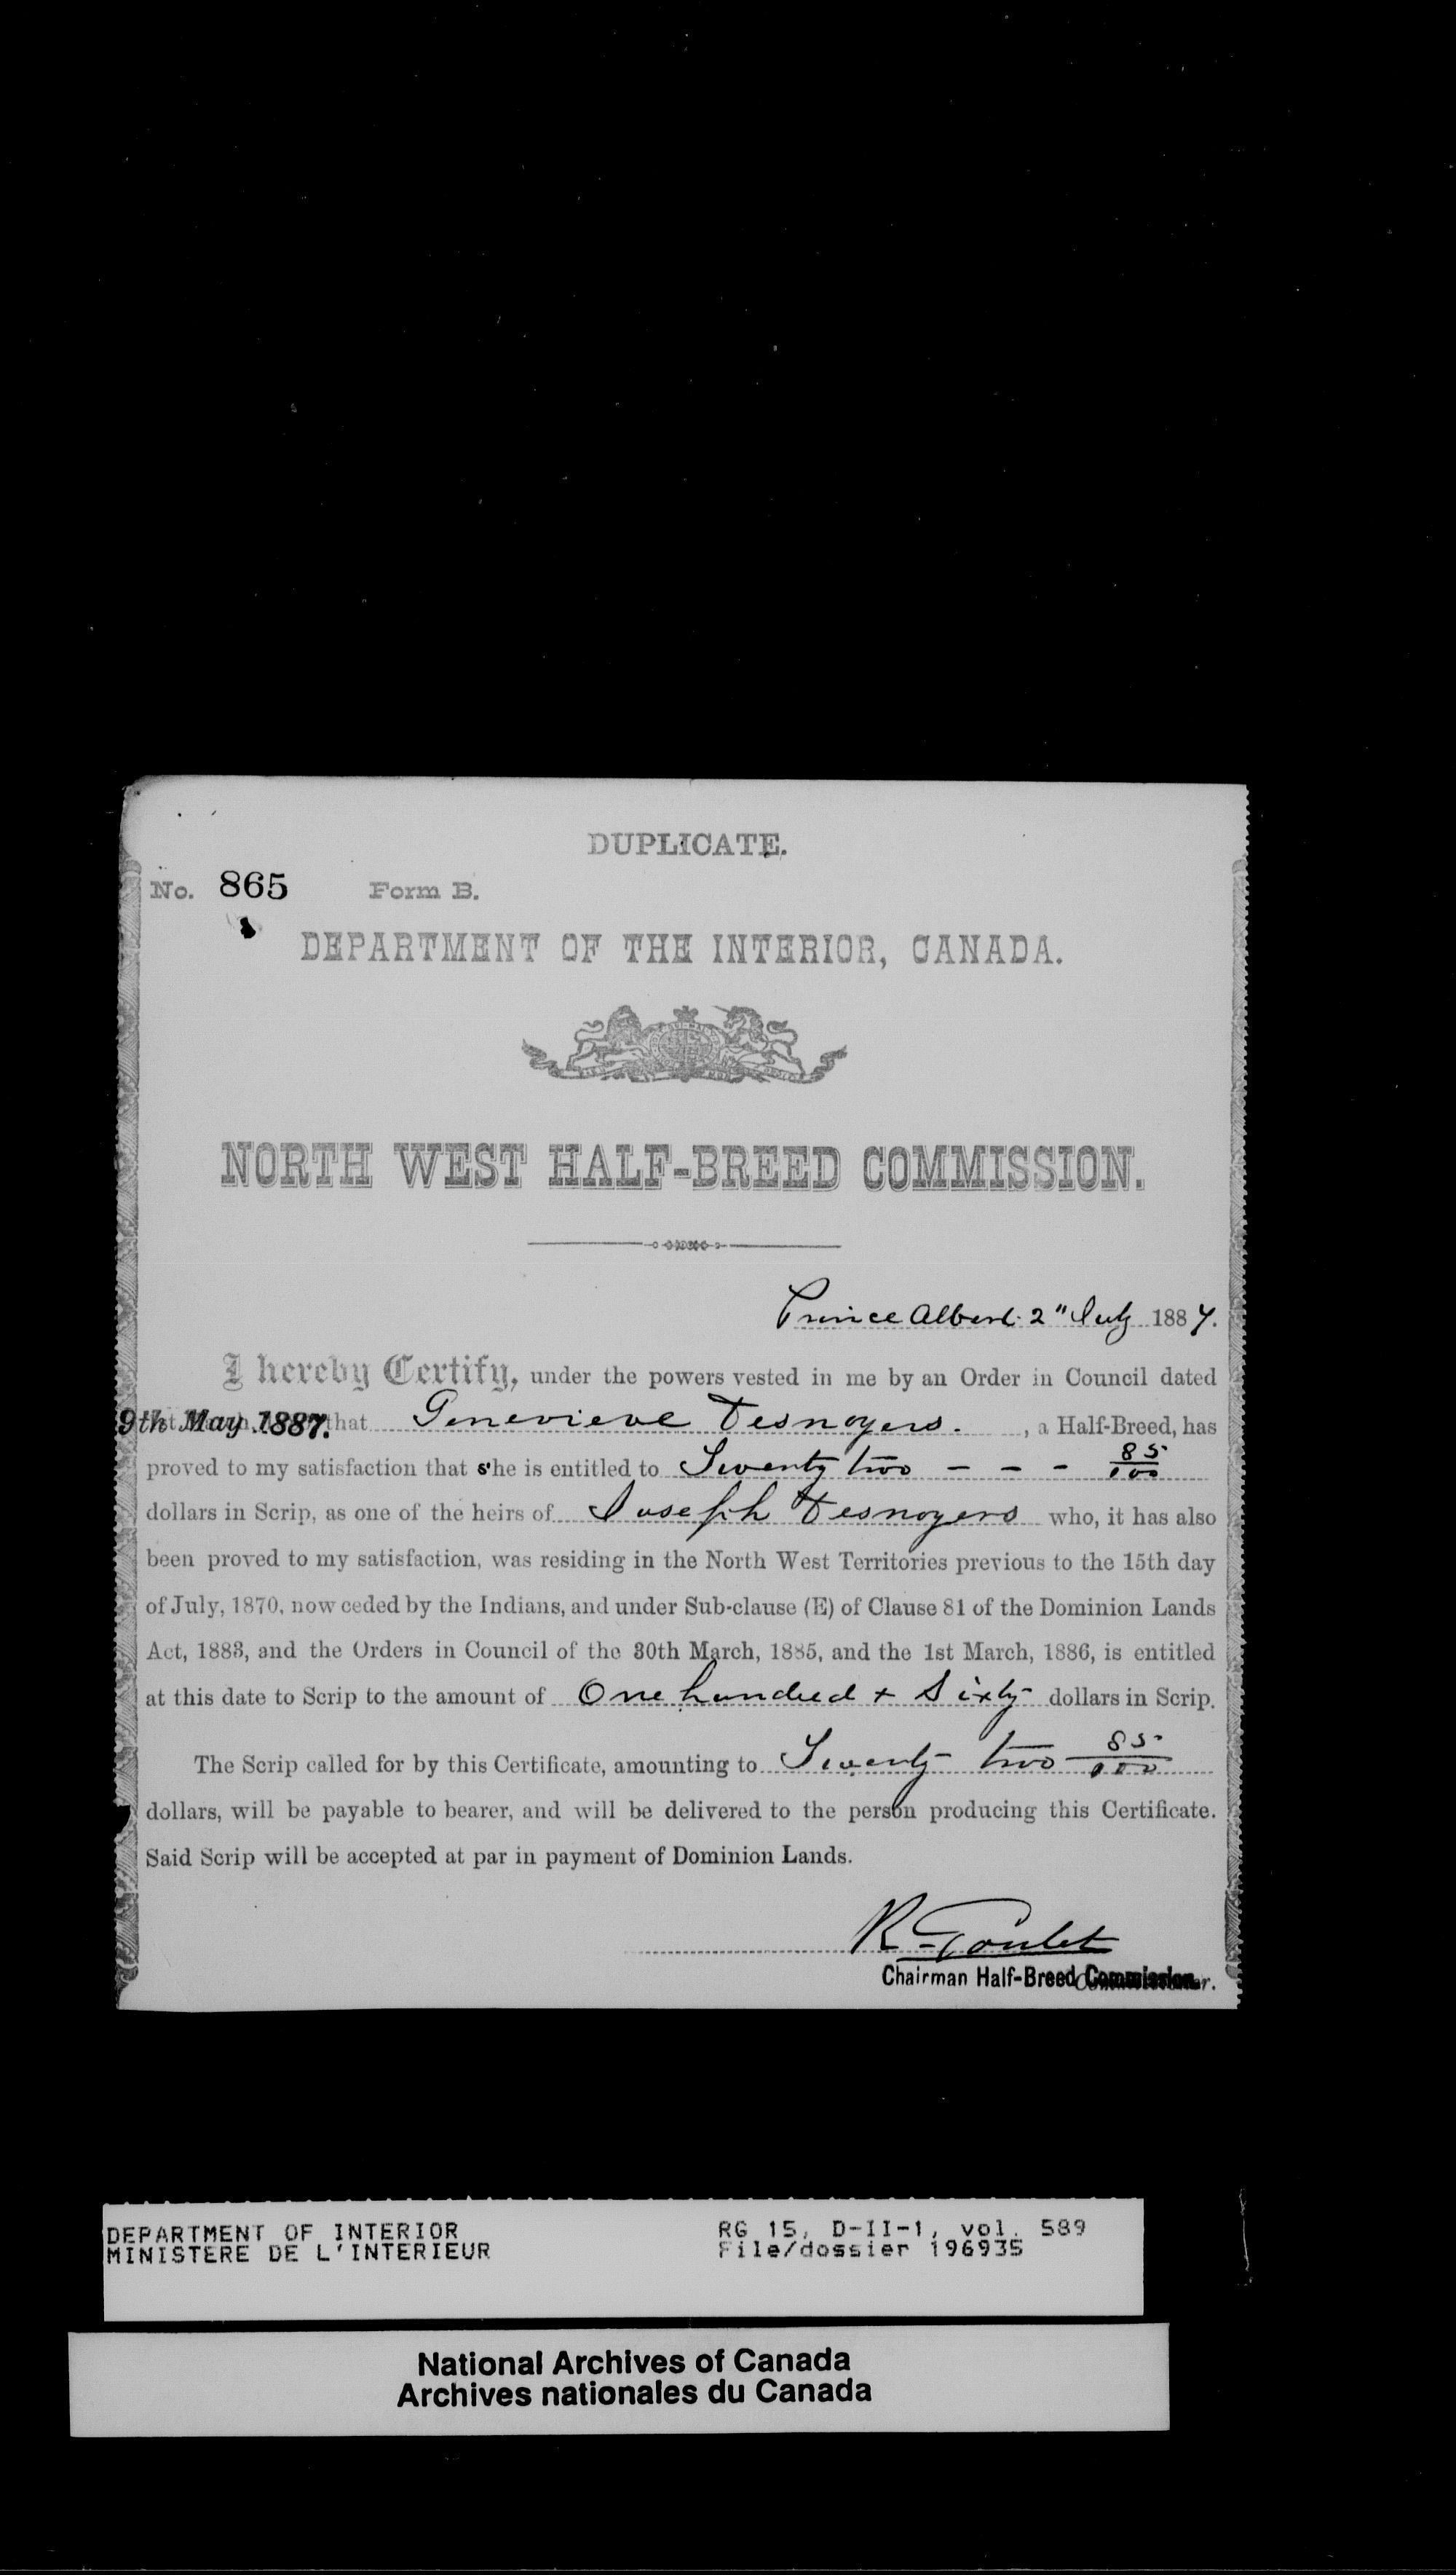 DUPLICATE.
No. 865 Form B.
DEPARTMENT OF THE INTERIOR, CANADA.
NORTH WEST HALF-BREED COMMISSION.
Prince Albert 2" July 1887.
I hereby Certify, under the powers vested in me by an Order in Council dated
9th May 1887. that Genevieve Desnoyers. , a Half-Breed, has
proved to my satisfaction that s'he is entitled to Twenty two - - - 85/100
dollars in Scrip, as one of the heirs of Joseph Desnoyers who, it has also
been proved to my satisfaction, was residing in the North West Territories previous to the 15th day
of July, 1870, now ceded by the Indians, and under Sub-clause (E) of Clause 81 of the Dominion Lands
Act, 1883, and the Orders in Council of the 30th March, 1885, and the 1st March, 1886, is entitled
at this date to Scrip to the amount of One hundred + Sixty dollars in Scrip.
The Scrip called for by this Certificate, amounting to Twenty two 85/100
dollars, will be payable to bearer, and will be delivered to the person producing this Certificate.
Said Scrip will be accepted at par in payment of Dominion Lands.
R Goulet
Chairman Half-Breed Commission.
DEPARTMENT OF INTERIOR RG 15, D-II-1, vol. 589
MINISTERE DE L'INTERIEUR File/dossier 196935
National Archives of Canada
Archives nationales du Canada